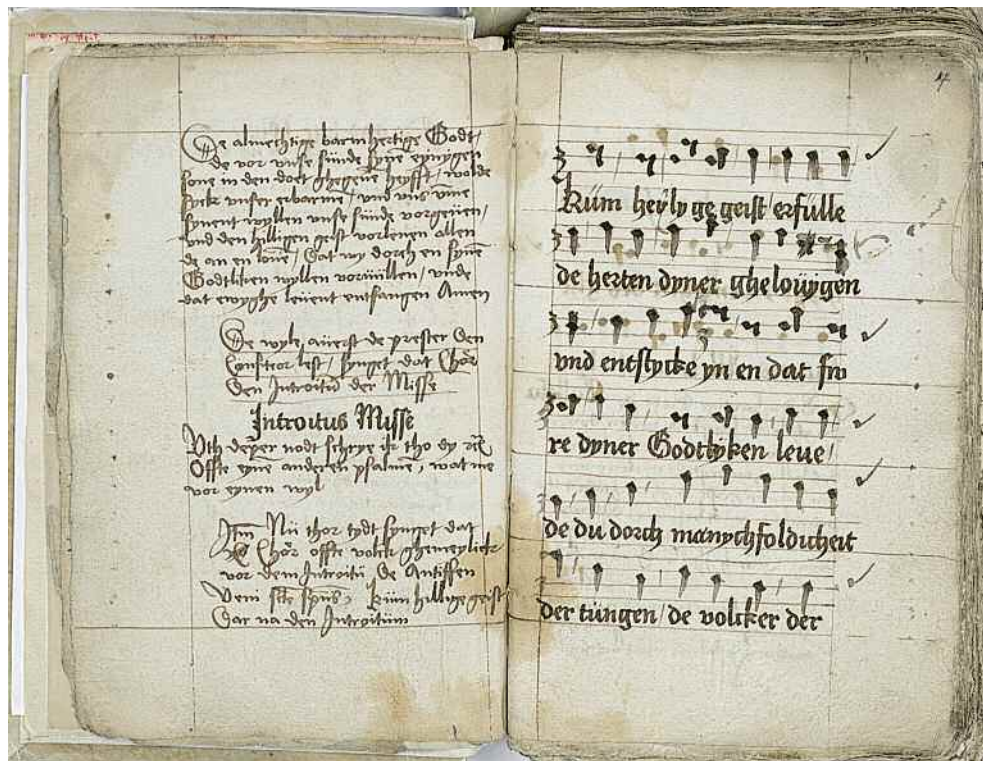 De almechtige barmhertige Godt/
de vor vnse sünde synē eynygen
sone in den doet ghegeuē heyfft/ wolde
syck vnser erbarmē/ vnd vns vmme
synent wyllen vnse sünde vorgeuen/
vnd den hilligen geist vorlenen allen
de an en louē/ Dat wy dorch en synē
Godtliken wyllen voruüllen/ vnde
dat ewyghe leuent entfangen Amen
De wyle auerst de prester den
Confiteor lest/ synget dat Chör
den Introitū der Misse
Introitus Misse
Vth deper nodt schrye ik tho dy
Offte eyne anderen psalmē, wat me
vor eynen wyl
Itm Nü thor tydt synget dat
Chör offte volck ghemeynlick
vor dem Introitū de Antiffen
Veni scte spūs, Küm hillige geist
Dar na den Introitum
17
Küm heylyge geist/ erfülle
de herten dyner ghelöuygen
vnd entstycke yn en dat fw
re dyner Godtlyken leue/
de du dorch manychfoldicheit
der tüngen/ de volcker der